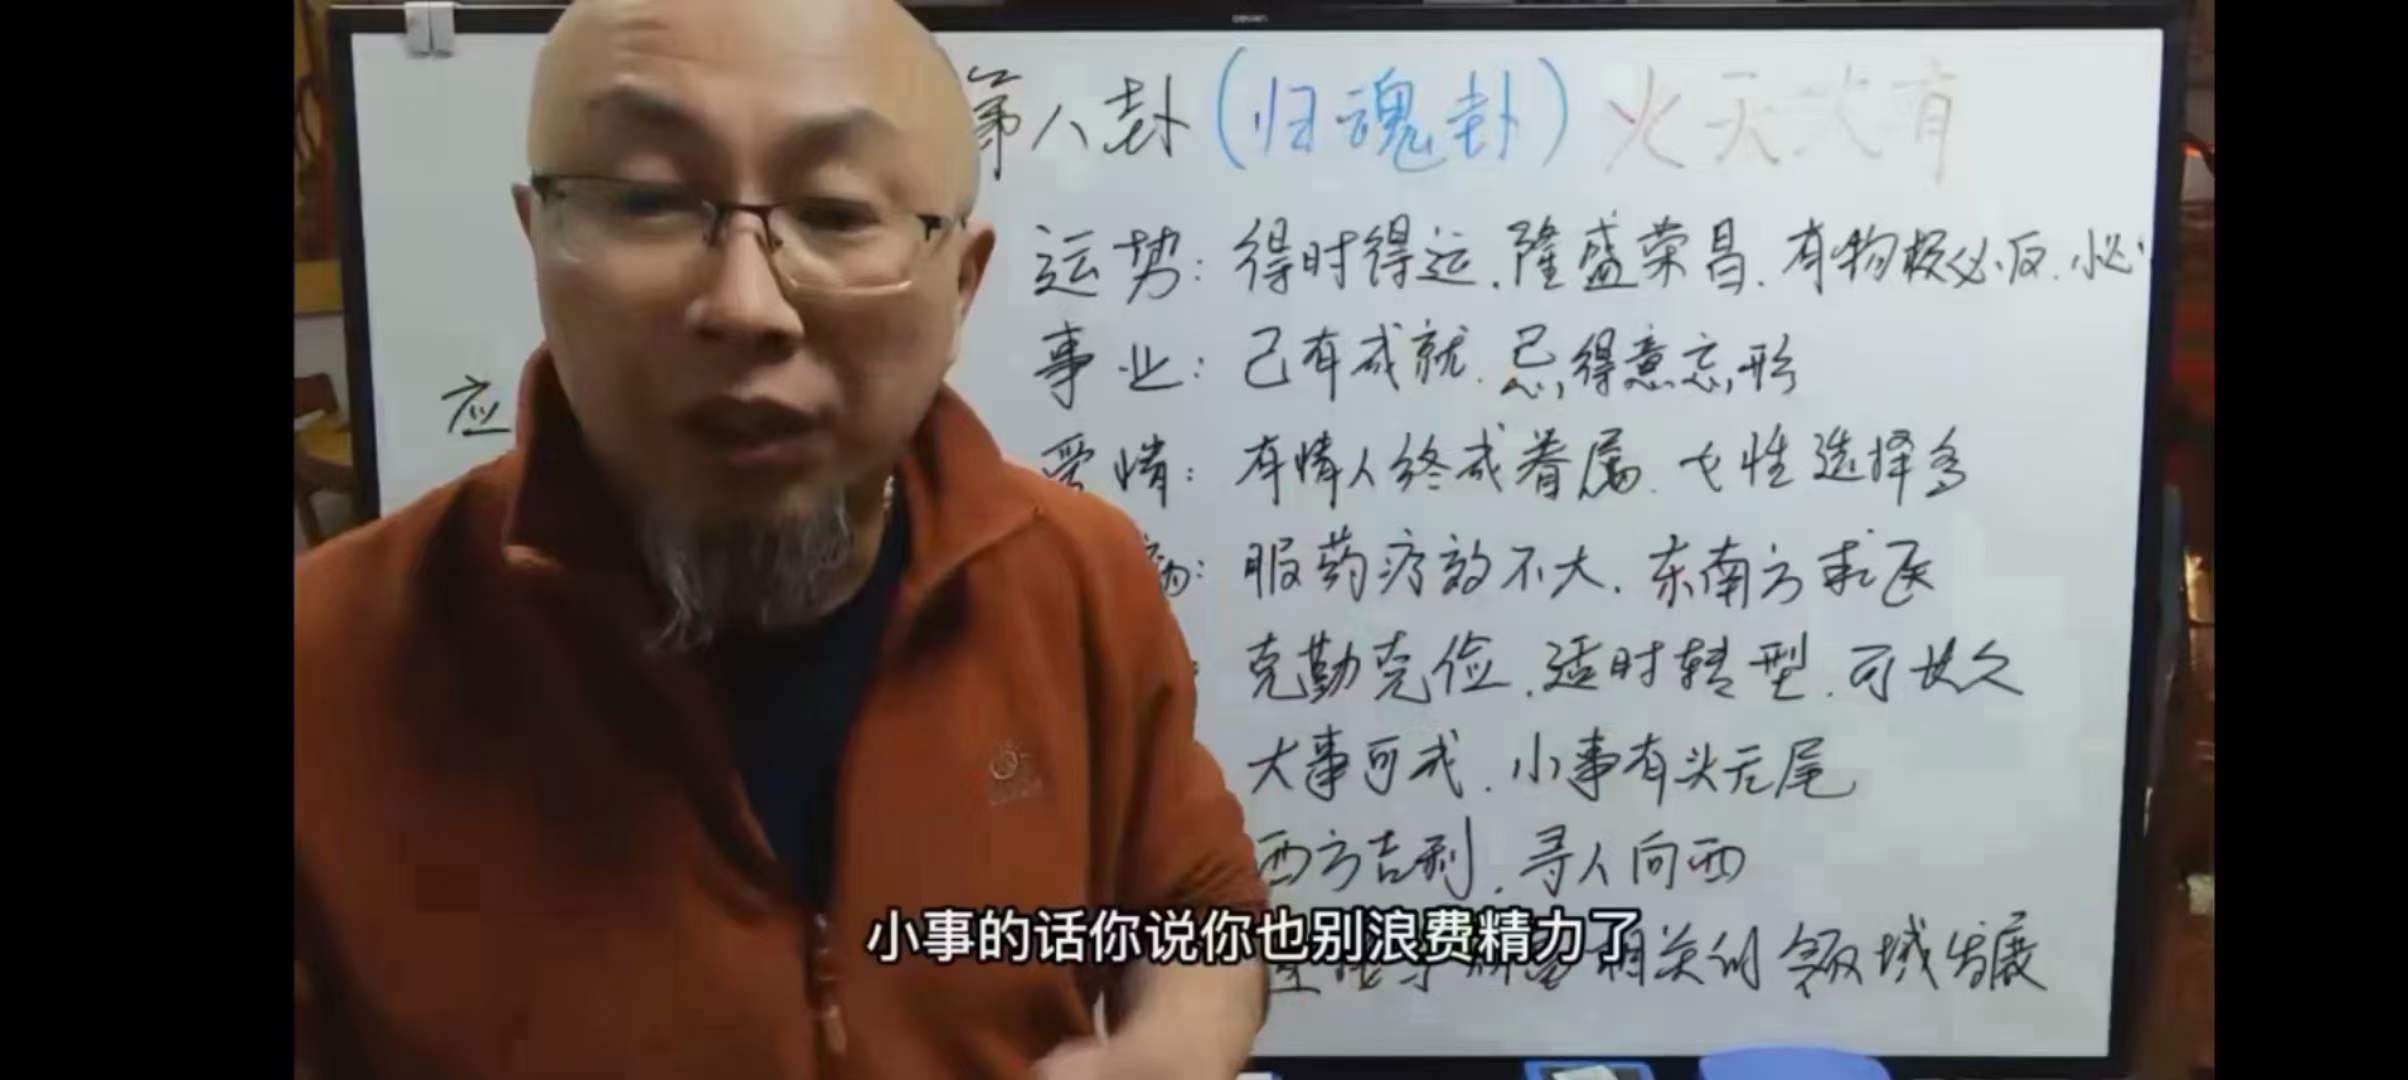 第八卦(归魂卦)火天大有
运势:得时得运.隆盛荣昌.有物极必反.小心
事业:己有成就.忌得意忘形
应
爱情:有情人终成眷属.女性选择多
病:服药疗效不大.东南方求医
:克勤克俭.适时转型.可长久
大事可成.小事有头无尾
西方吉利.寻人向西
小事的话你说你也别浪费精力了
相关的领域发展